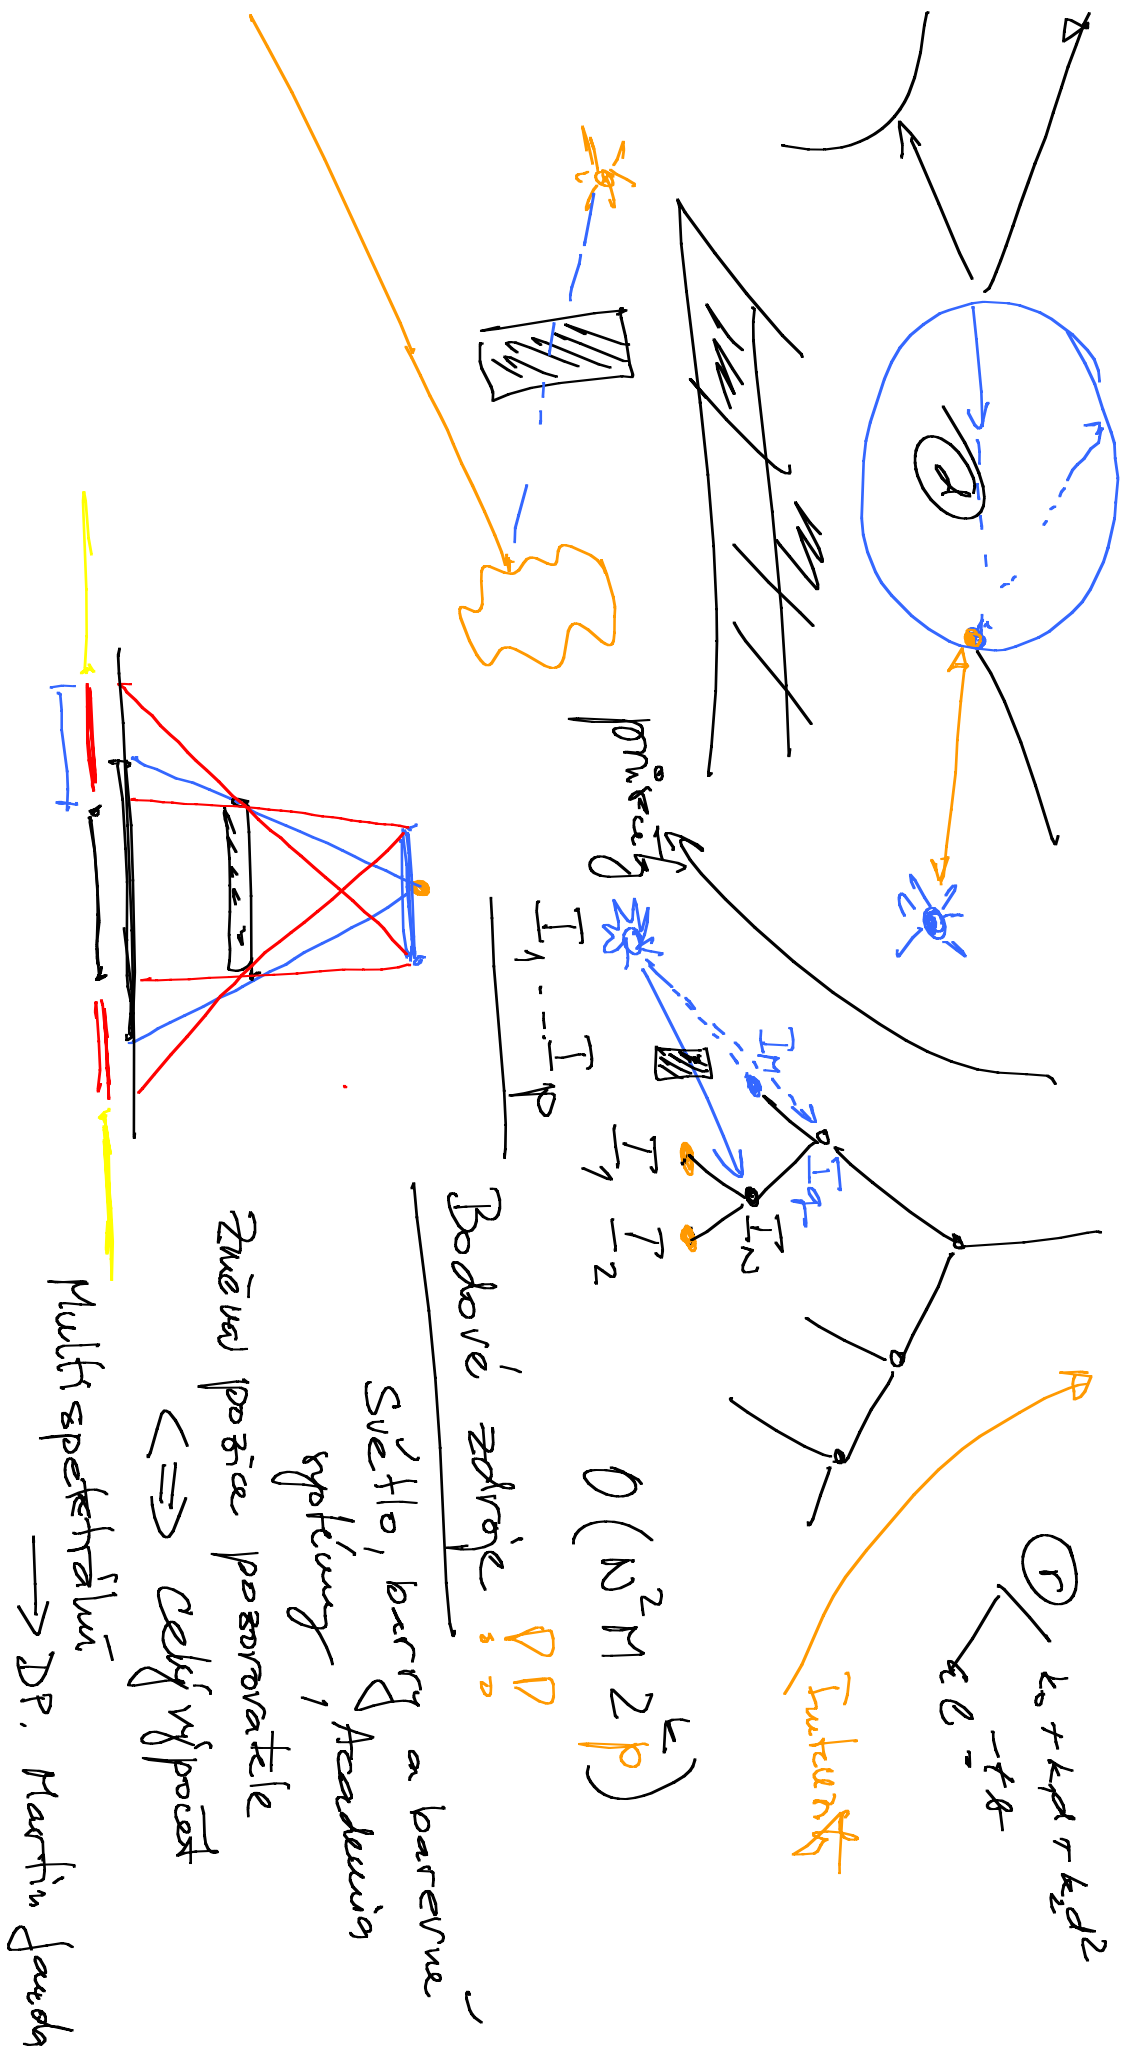 r
k₀ + k₁d + k₂d²
e^-td
Intenzity
2
O(N²M2^k p)
I_M
I_q
I_N
I₁ I₂
průřezy
I₁ ... I_p
Bodové zdroje
Světlo, barvy a barevné
systémy, Academia
Změna pozice pozorovatele
<=> Celý výpočet
Multispektrální
→ DP. Martin Janda